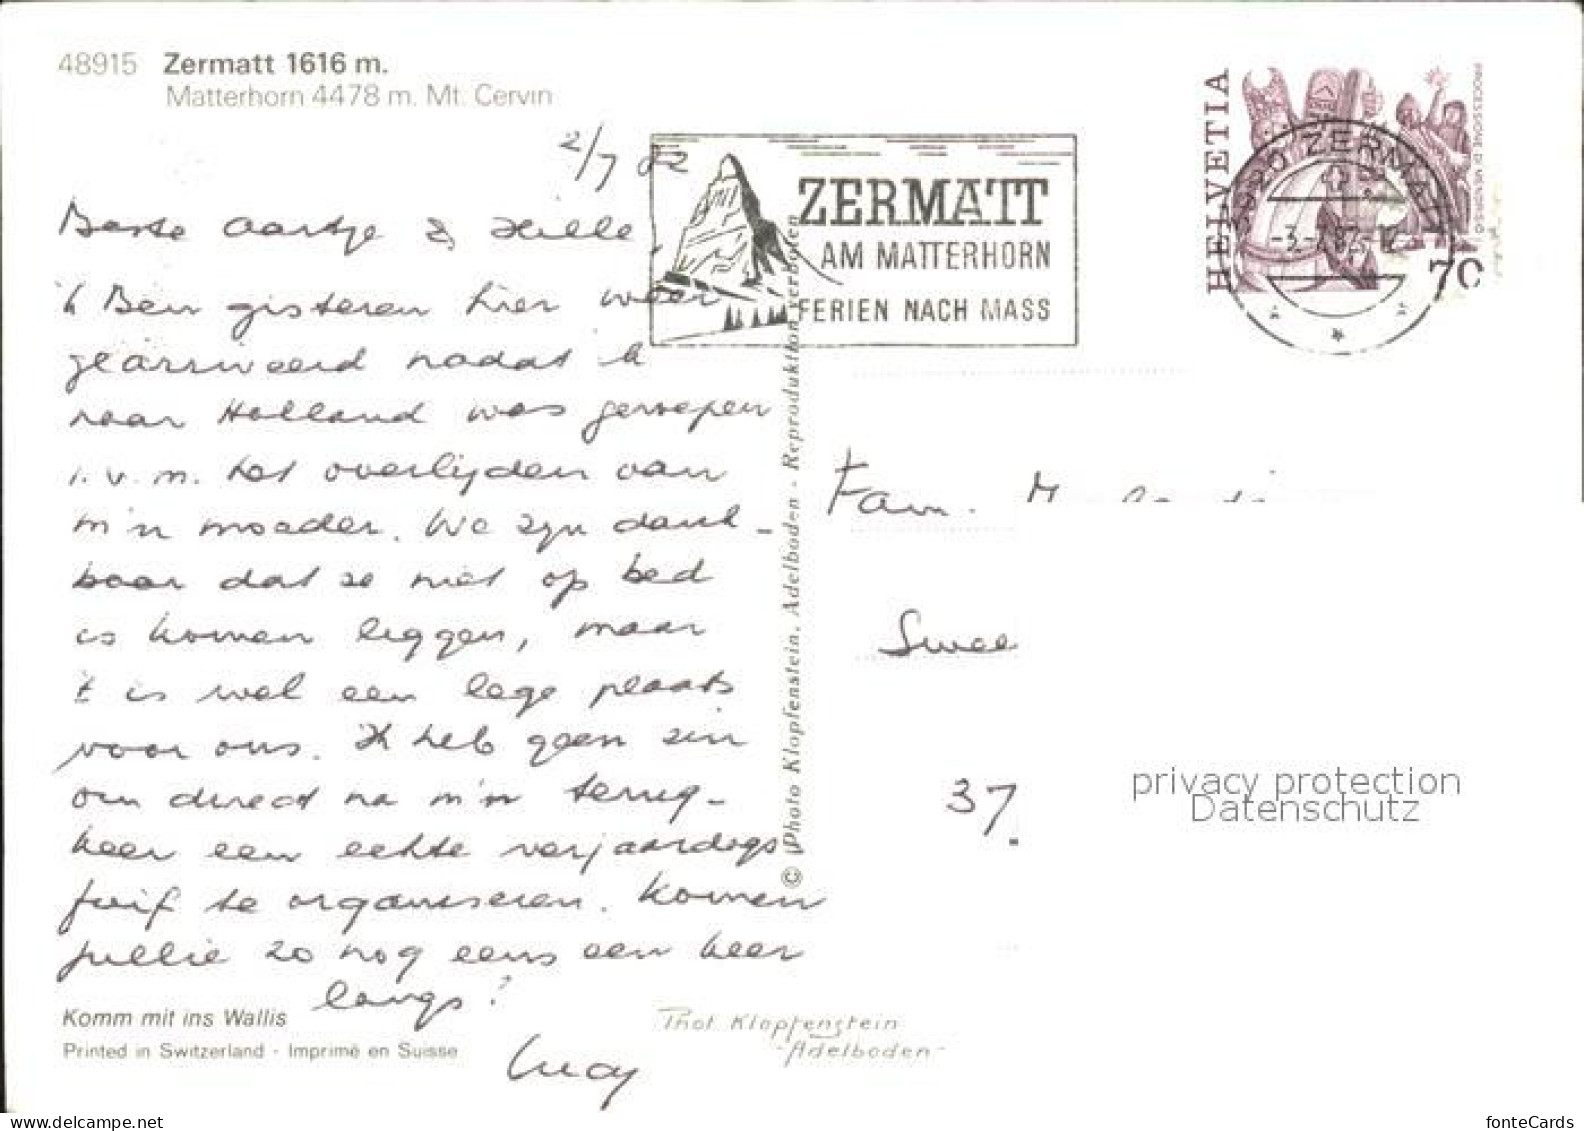 48915 Zermatt 1616 m.
Matterhorn 4478 m. Mt. Cervin
2/7 82
Beste Aartje & Hille,
'k Ben gisteren hier weer
gearriveerd nadat ik
naar Holland was geroepen
i.v.m. het overlijden van
m'n moeder. We zijn dank-
baar dat ze niet op bed
is komen liggen, maar
't is wel een lege plaats
voor ons. Ik heb geen zin
om direct na m'n terug-
keer een echte verjaardags
fuif te organiseren. Komen
jullie zo nog eens een keer
langs?
Lucy
Komm mit ins Wallis
Printed in Switzerland - Imprimé en Suisse
© Photo Klopfenstein, Adelboden - Reproduktion verboten
Phot. Klopfenstein
-Adelboden-
ZERMATT
AM MATTERHORN
FERIEN NACH MASS
HELVETIA
PROCESSIONE DI MENDRISIO
70
3920 ZERMATT
Fam. M
Swee
37.
privacy protection
Datenschutz
www.delcampe.net
fonteCards